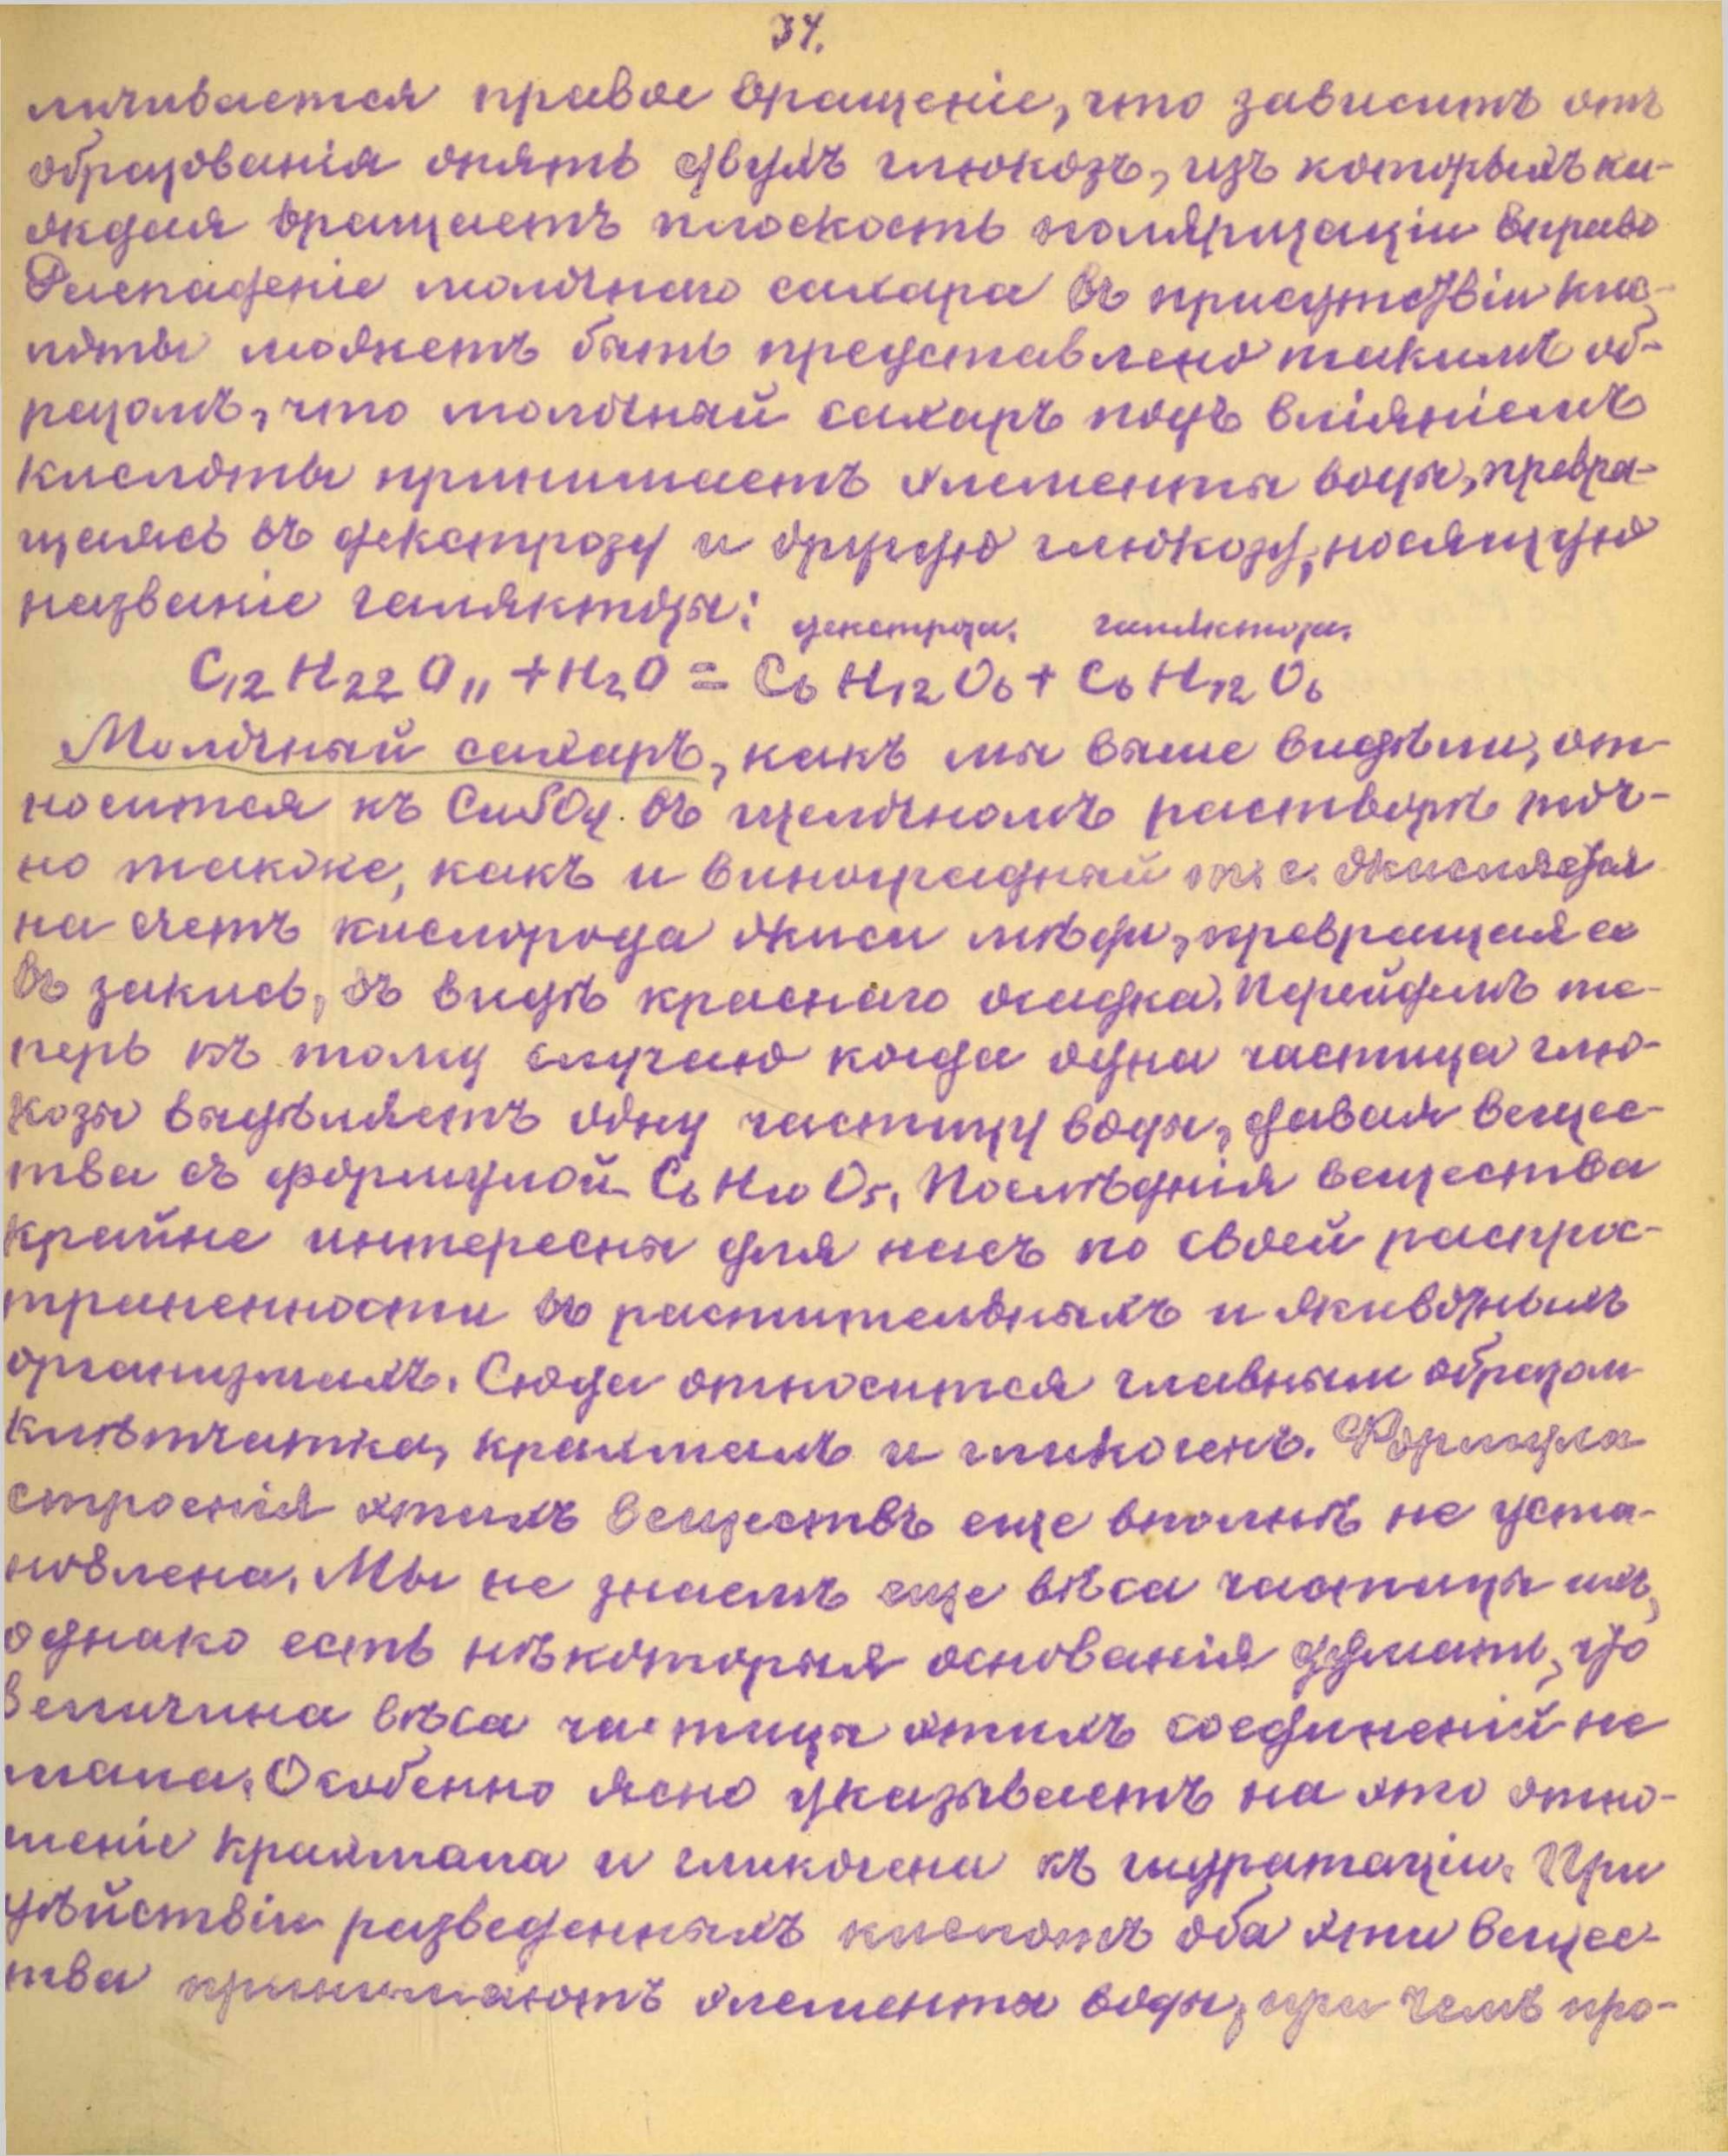 34.
личивается правое вращеніе, что зависитъ отъ
образованія опять двухъ глюкозъ, изъ которыхъ ка-
ждая вращаетъ плоскость поляризаціи вправо
Распаденіе молочнаго сахара въ присутствіи кис-
лоты можетъ быть представлено такимъ об-
разомъ, что молочный сахаръ подъ вліяніемъ
кислоты принимаетъ элементы воды, превра-
щаясь въ декстрозу и другую глюкозу, носящую
названіе галяктозы:
декстроза. галяктоза.
C12H22O11 + H2O = C6H12O6 + C6H12O6
Молочный сахаръ, какъ мы выше видѣли, от-
носится къ CuSO4 въ щелочномъ растворѣ точ-
но также, какъ и виноградный т. е. окисляется
на счетъ кислорода окиси мѣди, превращая ее
въ закись, въ видѣ краснаго осадка. Перейдемъ те-
перь къ тому случаю когда одна частица глю-
козы выдѣляетъ одну частицу воды, давая вещес-
тва съ формулой C6H10O5. Послѣднія вещества
крайне интересны для насъ по своей распрос-
траненности въ растительныхъ и животныхъ
организмахъ. Сюда относится главным образом
клѣтчатка, крахмалъ и гликогенъ. Формула
строенія этихъ веществъ еще вполнѣ не уста-
новлена. Мы не знаемъ еще вѣса частицы ихъ,
однако есть нѣкоторыя основанія думать, что
величина вѣса частицы этихъ соединеній не
мала. Особенно ясно указываетъ на это отно-
шеніе крахмала и гликогена къ гидратаціи. При
дѣйствіи разведенныхъ кислотъ оба эти вещес-
тва принимаютъ элементы воды, при чемъ про-